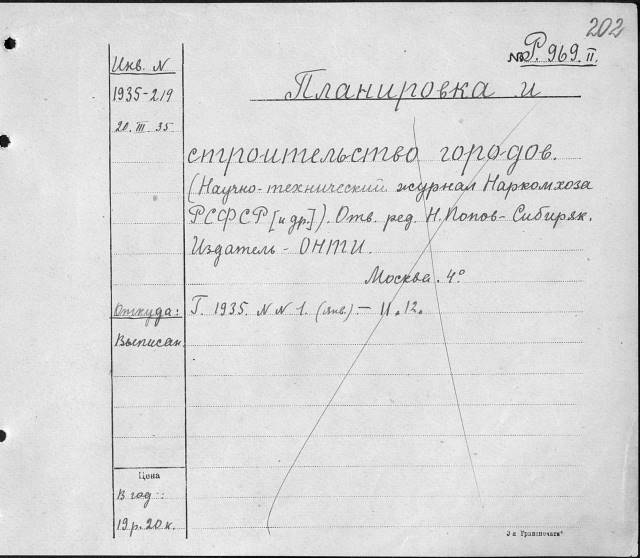 202
№ Р. 969. II.
Инв. N
1935-219
20. III. 35
Планировка и
строительство городов.
(Научно-технический журнал Наркомхоза
РСФСР [и др.]). Отв. ред. Н. Попов-Сибиряк.
Издатель - ОНТИ.
Москва. 4°
Откуда:
Выписан.
Г. 1935. N N 1. (янв.) - 11. 12.
Цена
В год:
19 р. 20 к.